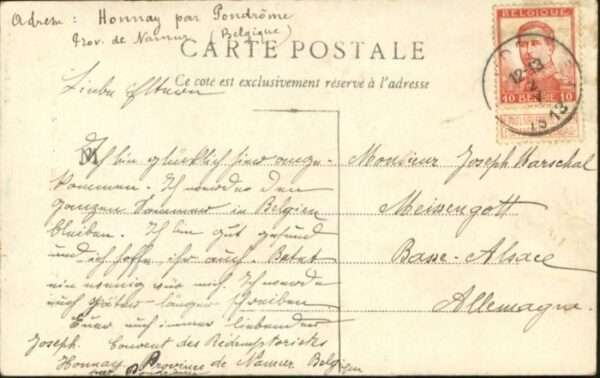 Adresse : Honnay par Pondrôme
Prov. de Namur (Belgique)
CARTE POSTALE
Ce côté est exclusivement réservé à l'adresse
BELGIQUE
10 BELGIE 10
12-13
1913
Liebe Eltern
Ich bin glücklich hier ange-
kommen. Ich werde den
ganzen Sommer in Belgien
bleiben. Ich bin gut gesund
und ich hoffe ihr auch. Betet
ein wenig für mich. Ich werde
euch später länger schreiben
Euer euch immer liebender
Joseph. Couvent des Rédemptoristes
Honnay Province de Namur Belgique
par Pondrôme
Monsieur Joseph Warschal
Meisengott
Basse-Alsace
Allemagne.